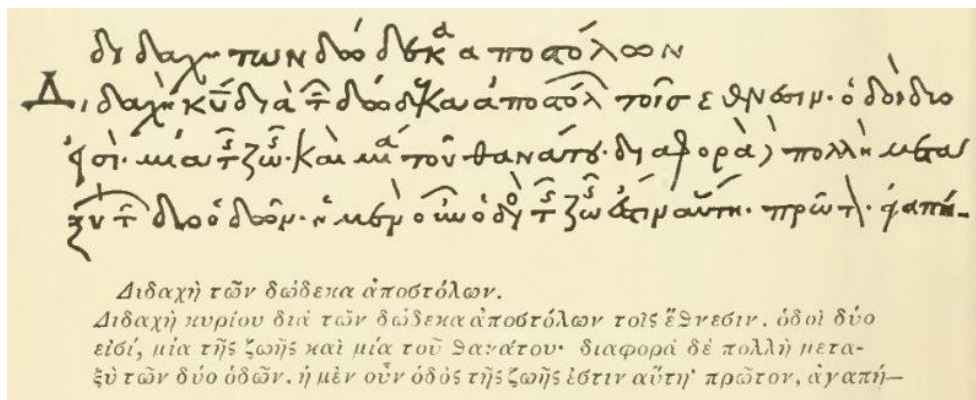 διδαχη των δώδεκα αποστόλων
Διδαχὴ κῡ διὰ τ̑ δώδεκα ἀποστόλ τοῖσ ἔθνεσιν· ὁδοὶ δύο
εἰσί· μία τ̑ς ζω̑ς· καὶ μία τοῦ θανάτου· διαφορὰ πολλὴ μετα
ξὺ τ̑ δύο ὁδῶν· ἡ μὲν οὖν ὁδὸ τ̑ς ζω̑ς ἐστιν αὕτη· πρῶτ· ἀγαπή–
Διδαχὴ τῶν δώδεκα ἀποστόλων.
Διδαχὴ κυρίου διὰ τῶν δώδεκα ἀποστόλων τοῖς ἔθνεσιν. ὁδοὶ δύο
εἰσί, μία τῆς ζωῆς καὶ μία τοῦ θανάτου· διαφορὰ δὲ πολλὴ μετα-
ξὺ τῶν δύο ὁδῶν. ἡ μὲν οὖν ὁδὸς τῆς ζωῆς ἐστιν αὕτη· πρῶτον, ἀγαπή–